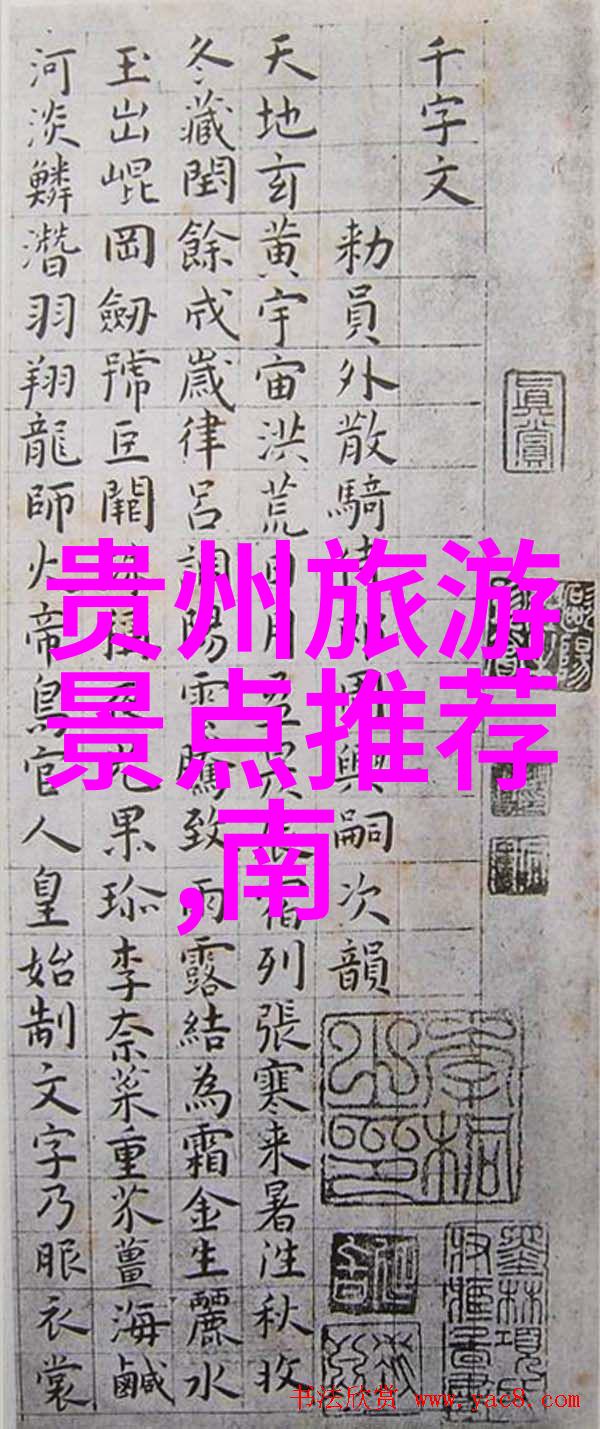 千字文
勑員外散騎侍郎周興嗣次韻
天地玄黃宇宙洪荒日月盈昃辰宿列張寒来暑往秋收
冬藏閏餘成歲律呂調陽雲騰致雨露結為霜金生麗水
玉出崐岡劒號巨闕珠稱夜光果珎李柰菜重芥薑海鹹
河淡鱗潛羽翔龍師火帝鳥官人皇始制文字乃服衣裳
眞賞
贵州旅游
景点推荐
,南
书法欣赏 www.yac8.com